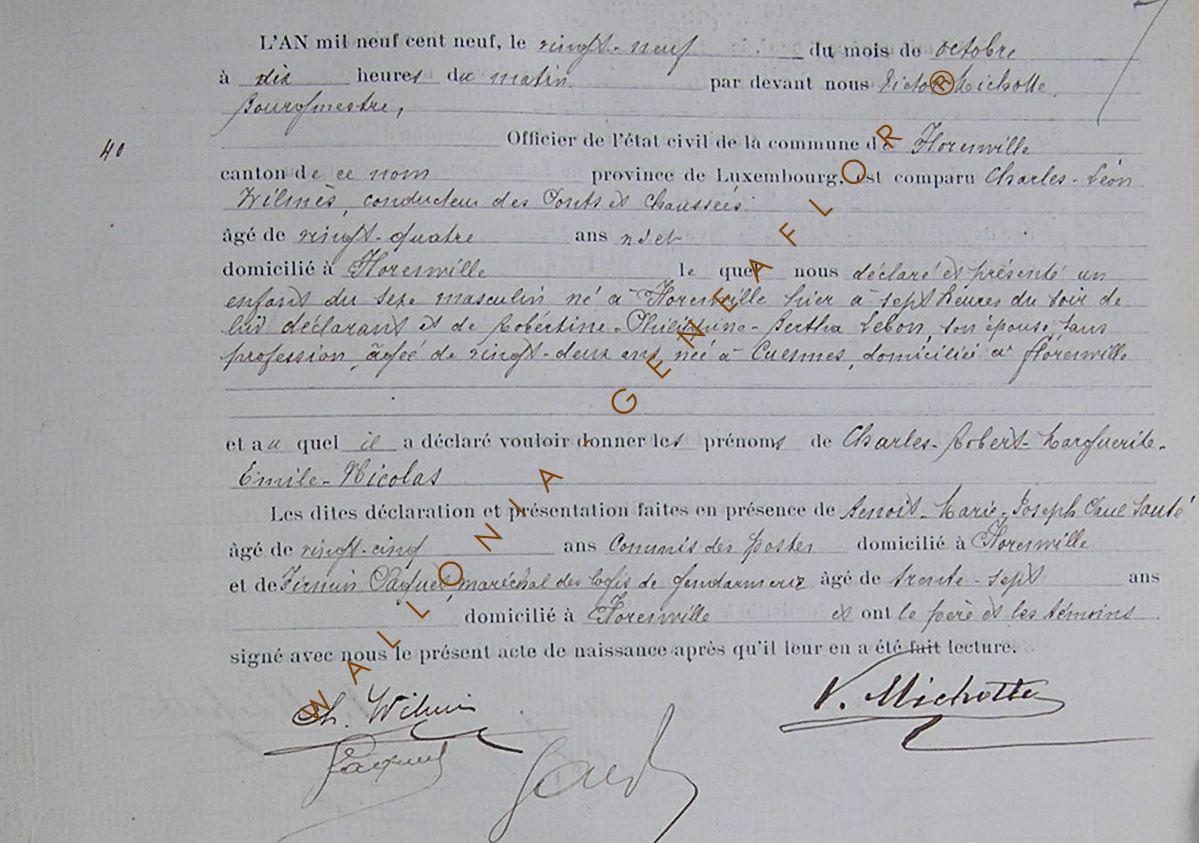 L'AN mil neuf cent neuf, le vingt-neuf du mois de octobre
à dix heures du matin par devant nous Victor Michotte,
Bourgmestre,
Officier de l'état civil de la commune de Florenville
40
canton de ce nom province de Luxembourg, est comparu Charles-Léon
Wilmès, conducteur des Ponts et Chaussées
âgé de vingt-quatre ans
domicilié à Florenville le quel nous déclaré et présenté un
enfant du sexe masculin né à Florenville hier à sept heures du soir de
lui déclarant et de Robertine-Philippine-Bertha Lebon, son épouse, sans
profession, âgée de vingt-deux ans, née à Cuesmes, domiciliée à Florenville
et au quel il a déclaré vouloir donner les prénoms de Charles-Robert-Marguerite-
Emile-Nicolas
Les dites déclaration et présentation faites en présence de Benoit-Marie-Joseph Paul
âgé de vingt-cinq ans Commis des postes domicilié à Florenville
et de Firmin maréchal des logis de gendarmerie âgé de trente-sept ans
domicilié à Florenville et ont le père et les témoins
signé avec nous le présent acte de naissance après qu'il leur en a été fait lecture.
Ch. Wilmès V. Michotte
WALLONIA - GENEAFLOR ®